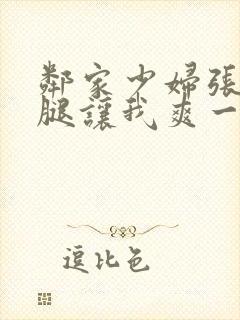 鄰家少婦張
腿讓我爽一
逗比色